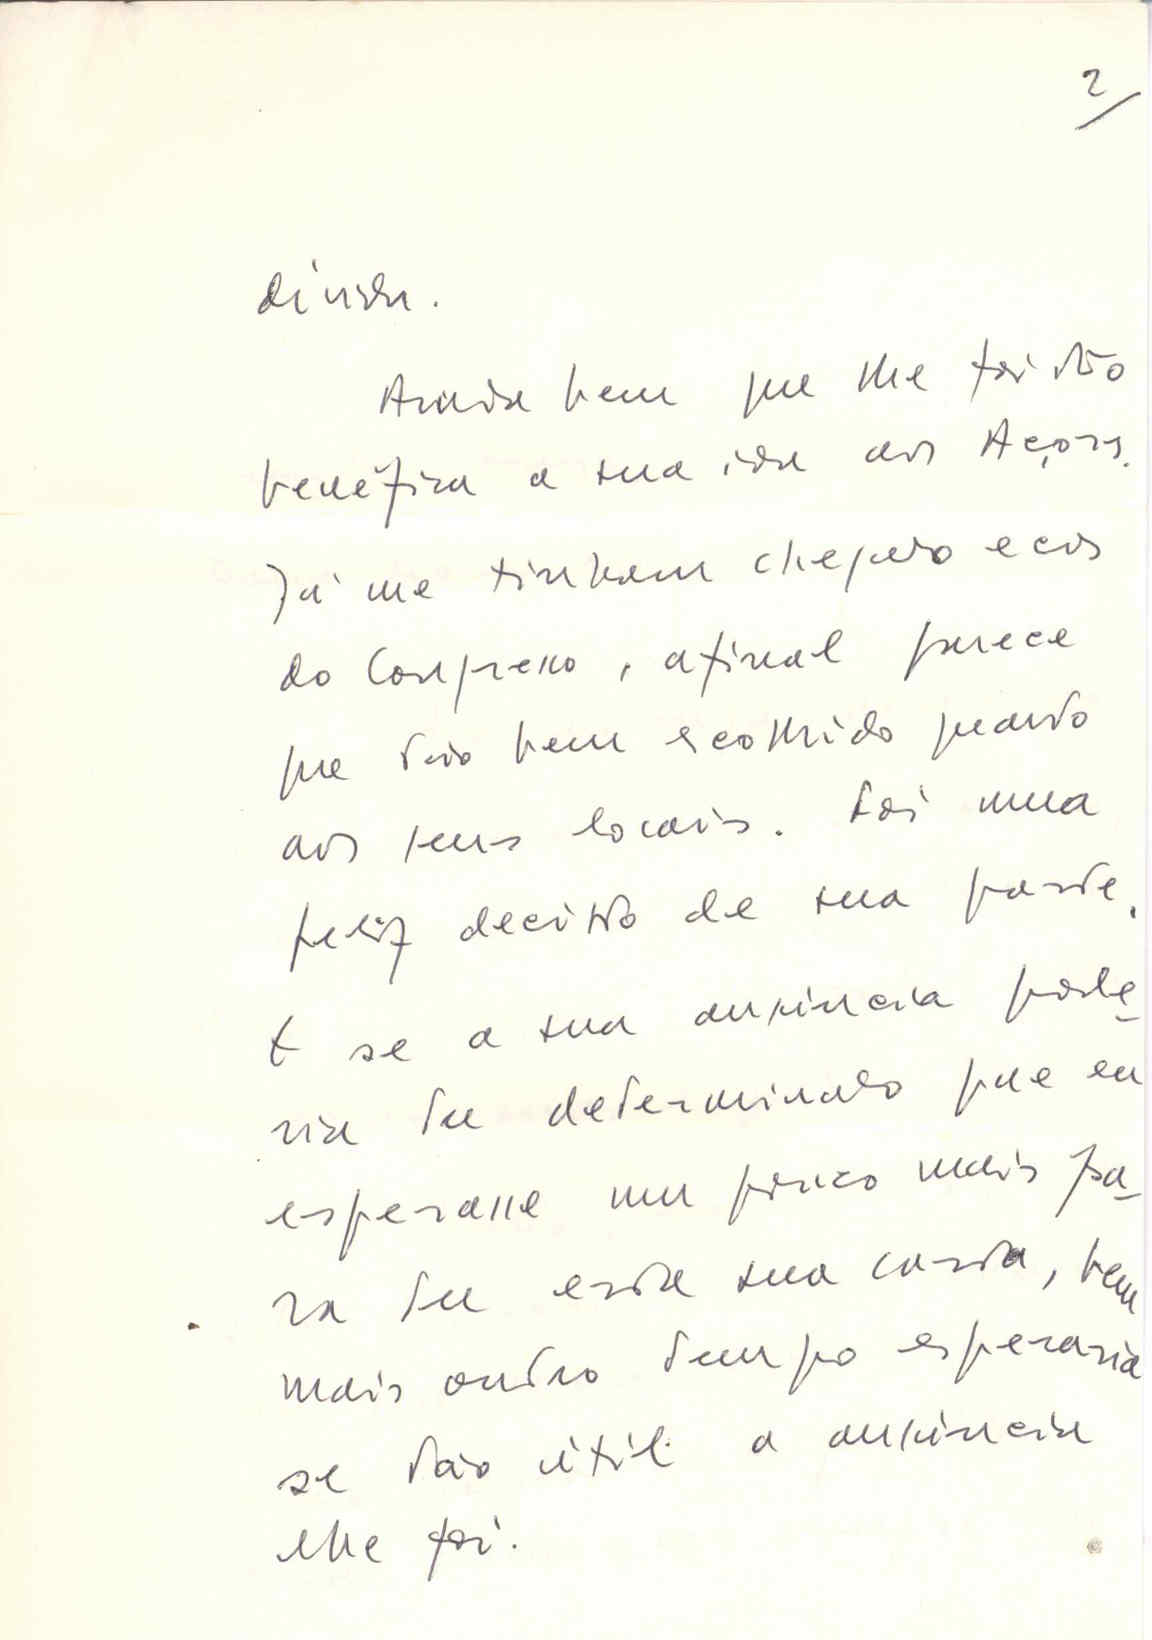 2/
ainda.
Ainda bem que lhe foi tão
benéfica a sua ida aos Açores.
Já me tinham chegado ecos
do Congresso, afinal parece
que tão bem escolhido quanto
aos seus locais. Foi uma
feliz decisão de sua parte.
E se a sua ausência pode-
ria ter determinado que eu
esperasse um pouco mais pa-
ra ter esta sua carta, bem
mais outro tempo esperaria
se tão útil a ausência
lhe foi.